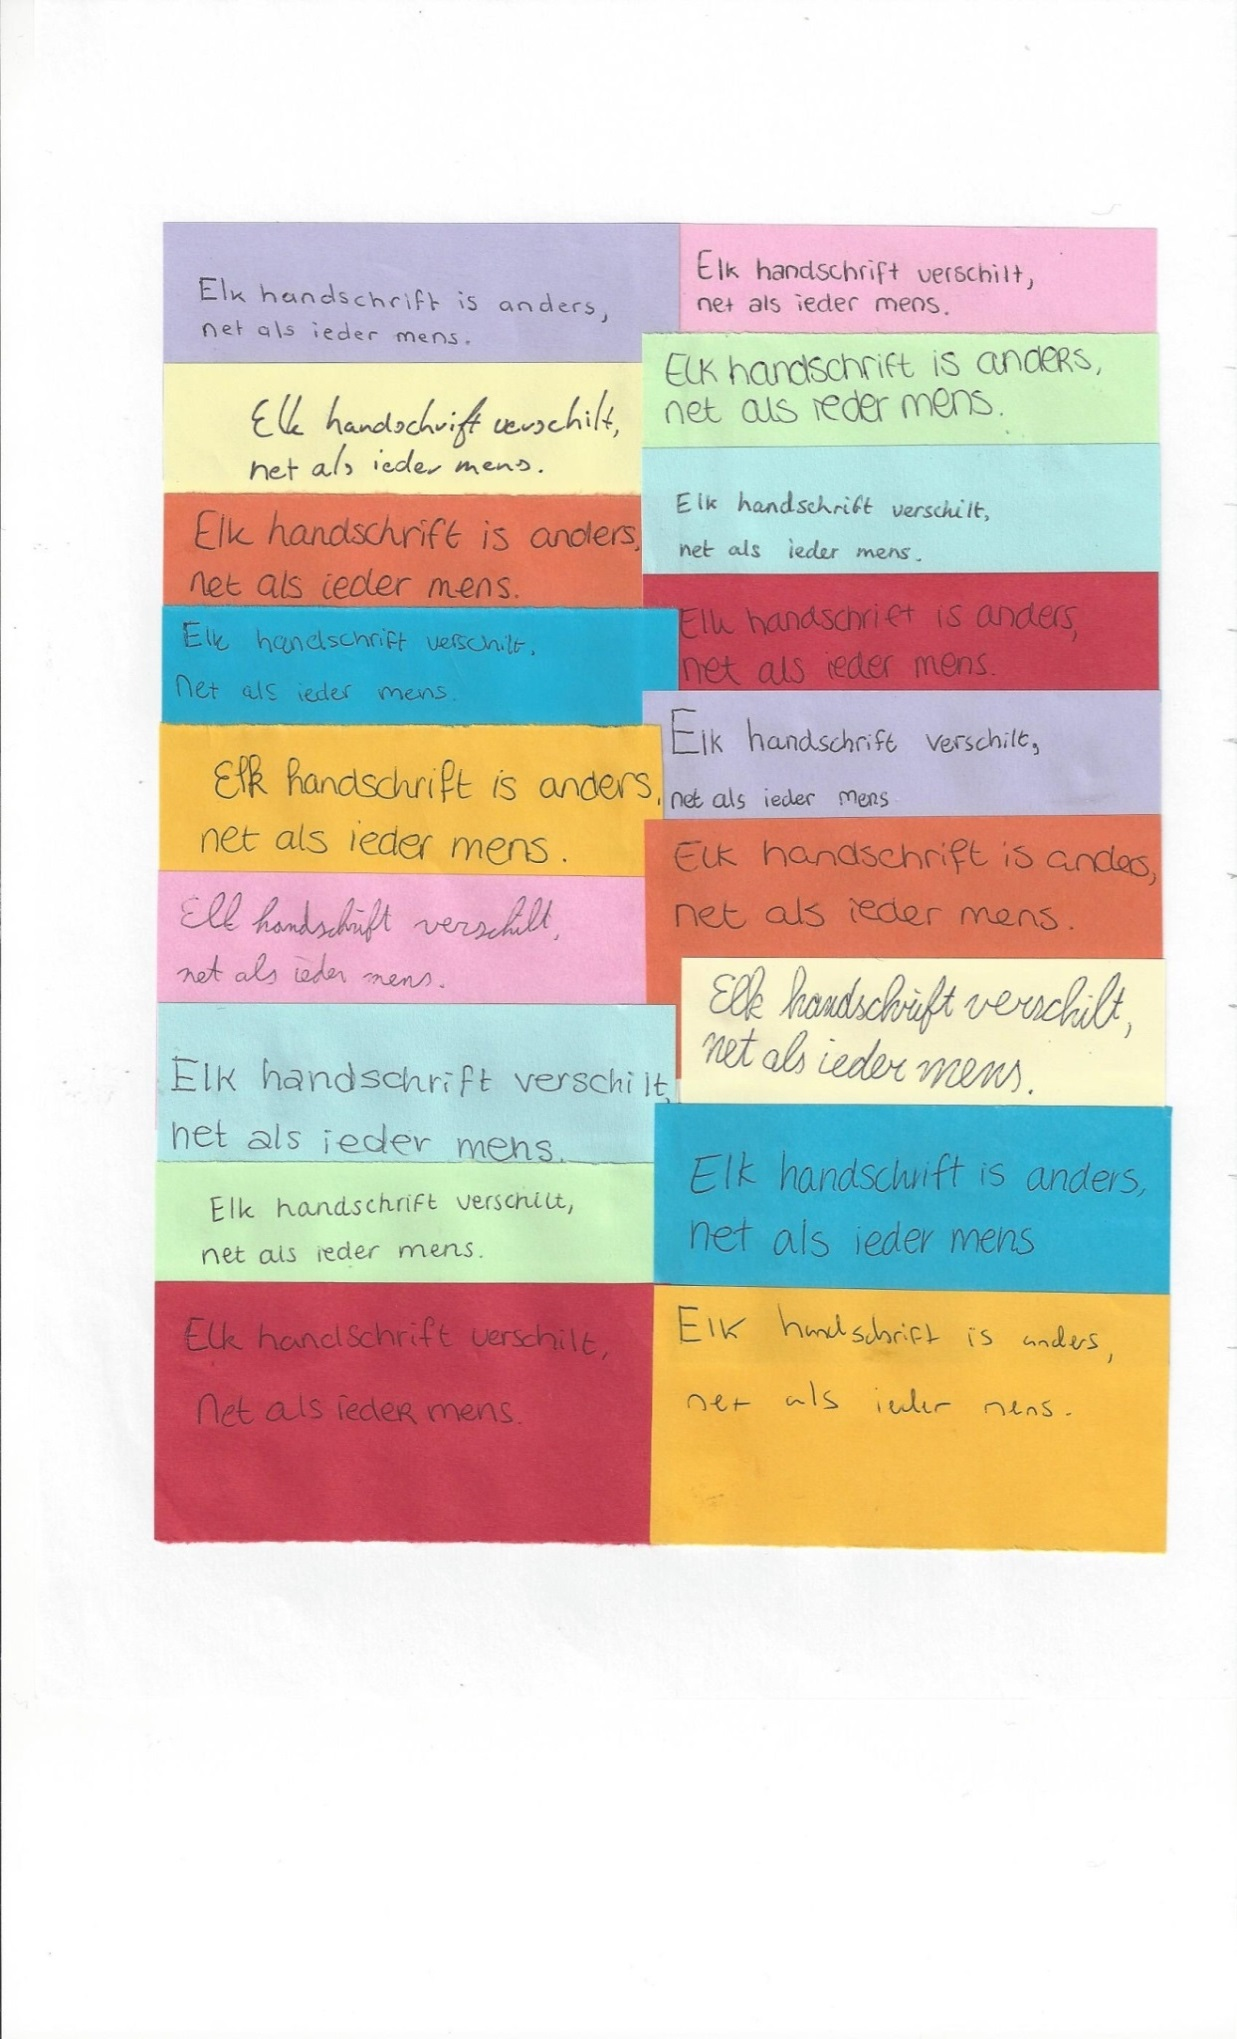 Elk handschrift is anders,
net als ieder mens.
Elk handschrift verschilt,
net als ieder mens.
Elk handschrift is anders,
net als ieder mens.
Elk handschrift verschilt,
net als ieder mens.
Elk handschrift is anders,
net als ieder mens.
Elk handschrift verschilt,
net als ieder mens.
Elk handschrift verschilt,
net als ieder mens.
Elk handschrift verschilt,
net als ieder mens.
Elk handschrift verschilt,
net als ieder mens.
Elk handschrift verschilt,
net als ieder mens.
Elk handschrift is anders,
net als ieder mens.
Elk handschrift verschilt,
net als ieder mens.
Elk handschrift is anders,
net als ieder mens.
Elk handschrift verschilt,
net als ieder mens
Elk handschrift is anders,
net als ieder mens.
Elk handschrift verschilt,
net als ieder mens.
Elk handschrift is anders,
net als ieder mens
Elk handschrift is anders,
net als ieder mens.